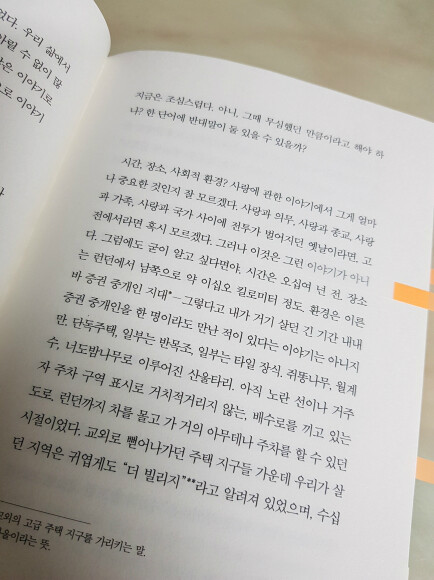 었다. 우리 삶에서
아릴 수 없이 많
은 이야기로
으로 이야기
지금은 조심스럽다. 아니, 그때 무심했던 만큼이라고 해야 하
나? 한 단어에 반대말이 둘 있을 수 있을까?
시간, 장소, 사회적 환경? 사랑에 관한 이야기에서 그게 얼마
나 중요한 것인지 잘 모르겠다. 사랑과 의무, 사랑과 종교, 사랑
과 가족, 사랑과 국가 사이에 전투가 벌어지던 옛날이라면, 고
전에서라면 혹시 모르겠다. 그러나 이것은 그런 이야기가 아니
다. 그럼에도 굳이 알고 싶다면야. 시간은 오십여 년 전. 장소
는 런던에서 남쪽으로 약 이십오 킬로미터 정도. 환경은 이른
바 증권 중개인 지대*—그렇다고 내가 거기 살던 긴 기간 내내
증권 중개인을 한 명이라도 만난 적이 있다는 이야기는 아니지
만. 단독주택, 일부는 반목조, 일부는 타일 장식. 쥐똥나무, 월계
수, 너도밤나무로 이루어진 산울타리. 아직 노란 선이나 거주
자 주차 구역 표시로 거치적거리지 않는, 배수로를 끼고 있는
도로. 런던까지 차를 몰고 가 거의 아무데나 주차를 할 수 있던
시절이었다. 교외로 뻗어나가던 주택 지구들 가운데 우리가 살
던 지역은 귀엽게도 “더 빌리지”**라고 알려져 있었으며, 수십
교외의 고급 주택 지구를 가리키는 말.
마을이라는 뜻.